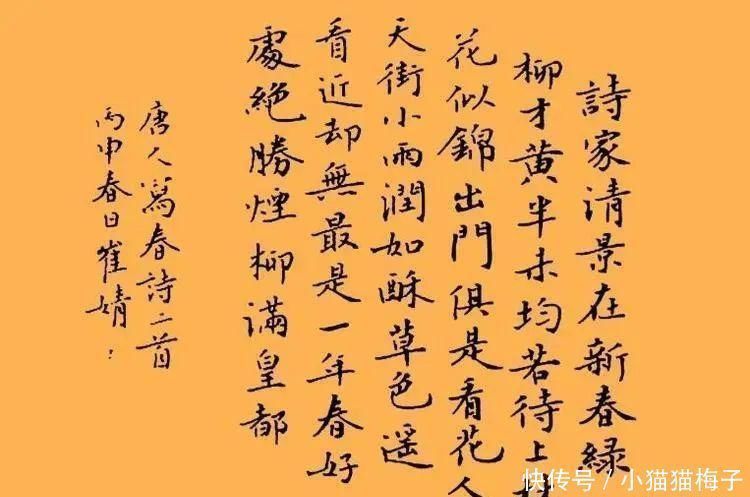 詩家清景在新春緑
柳才黄半未均若待上
花似錦出門俱是看花人
天街小雨潤如酥草色遥
看近却無最是一年春好
處絶勝煙柳滿皇都
唐人寫春詩二首
丙申春日崔婧
快传号 / 小猫猫梅子